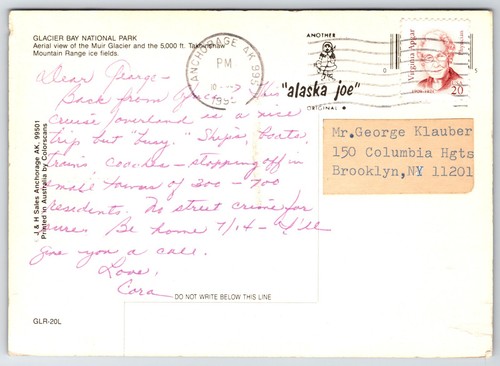 GLACIER BAY NATIONAL PARK
Aerial view of the Muir Glacier and the 5,000 ft. Takhinshaw
Mountain Range ice fields.
ANCHORAGE AK 995
PM
ANOTHER
"alaska joe"
ORIGINAL
Virginia Apgar
Physician
20
Dear George -
Back from This
cruise/overland is a nice
trip but "busy." Ships, boats
trains coaches - stopping off in
small towns of 200 - 700
residents. No street crime for
sure. Be home 7/14 - I'll
give you a call.
Love,
Cora
Mr.George Klauber
150 Columbia Hgts
Brooklyn,NY 11201
J & H Sales Anchorage AK, 99501
Printed in Australia by Colorscans
DO NOT WRITE BELOW THIS LINE
GLR-20L